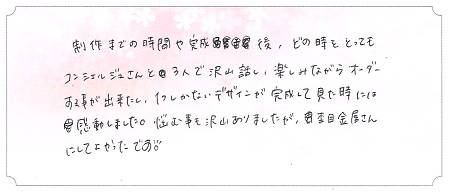 制作までの時間や完成後，どの時をとっても
コンシェルジュさんと3人で沢山話し，楽しみながらオーダー
する事が出来たし，1つしかないデザインが完成して見た時には
感動しました。悩む事も沢山ありましたが，杢目金屋さん
にしてよかったです。